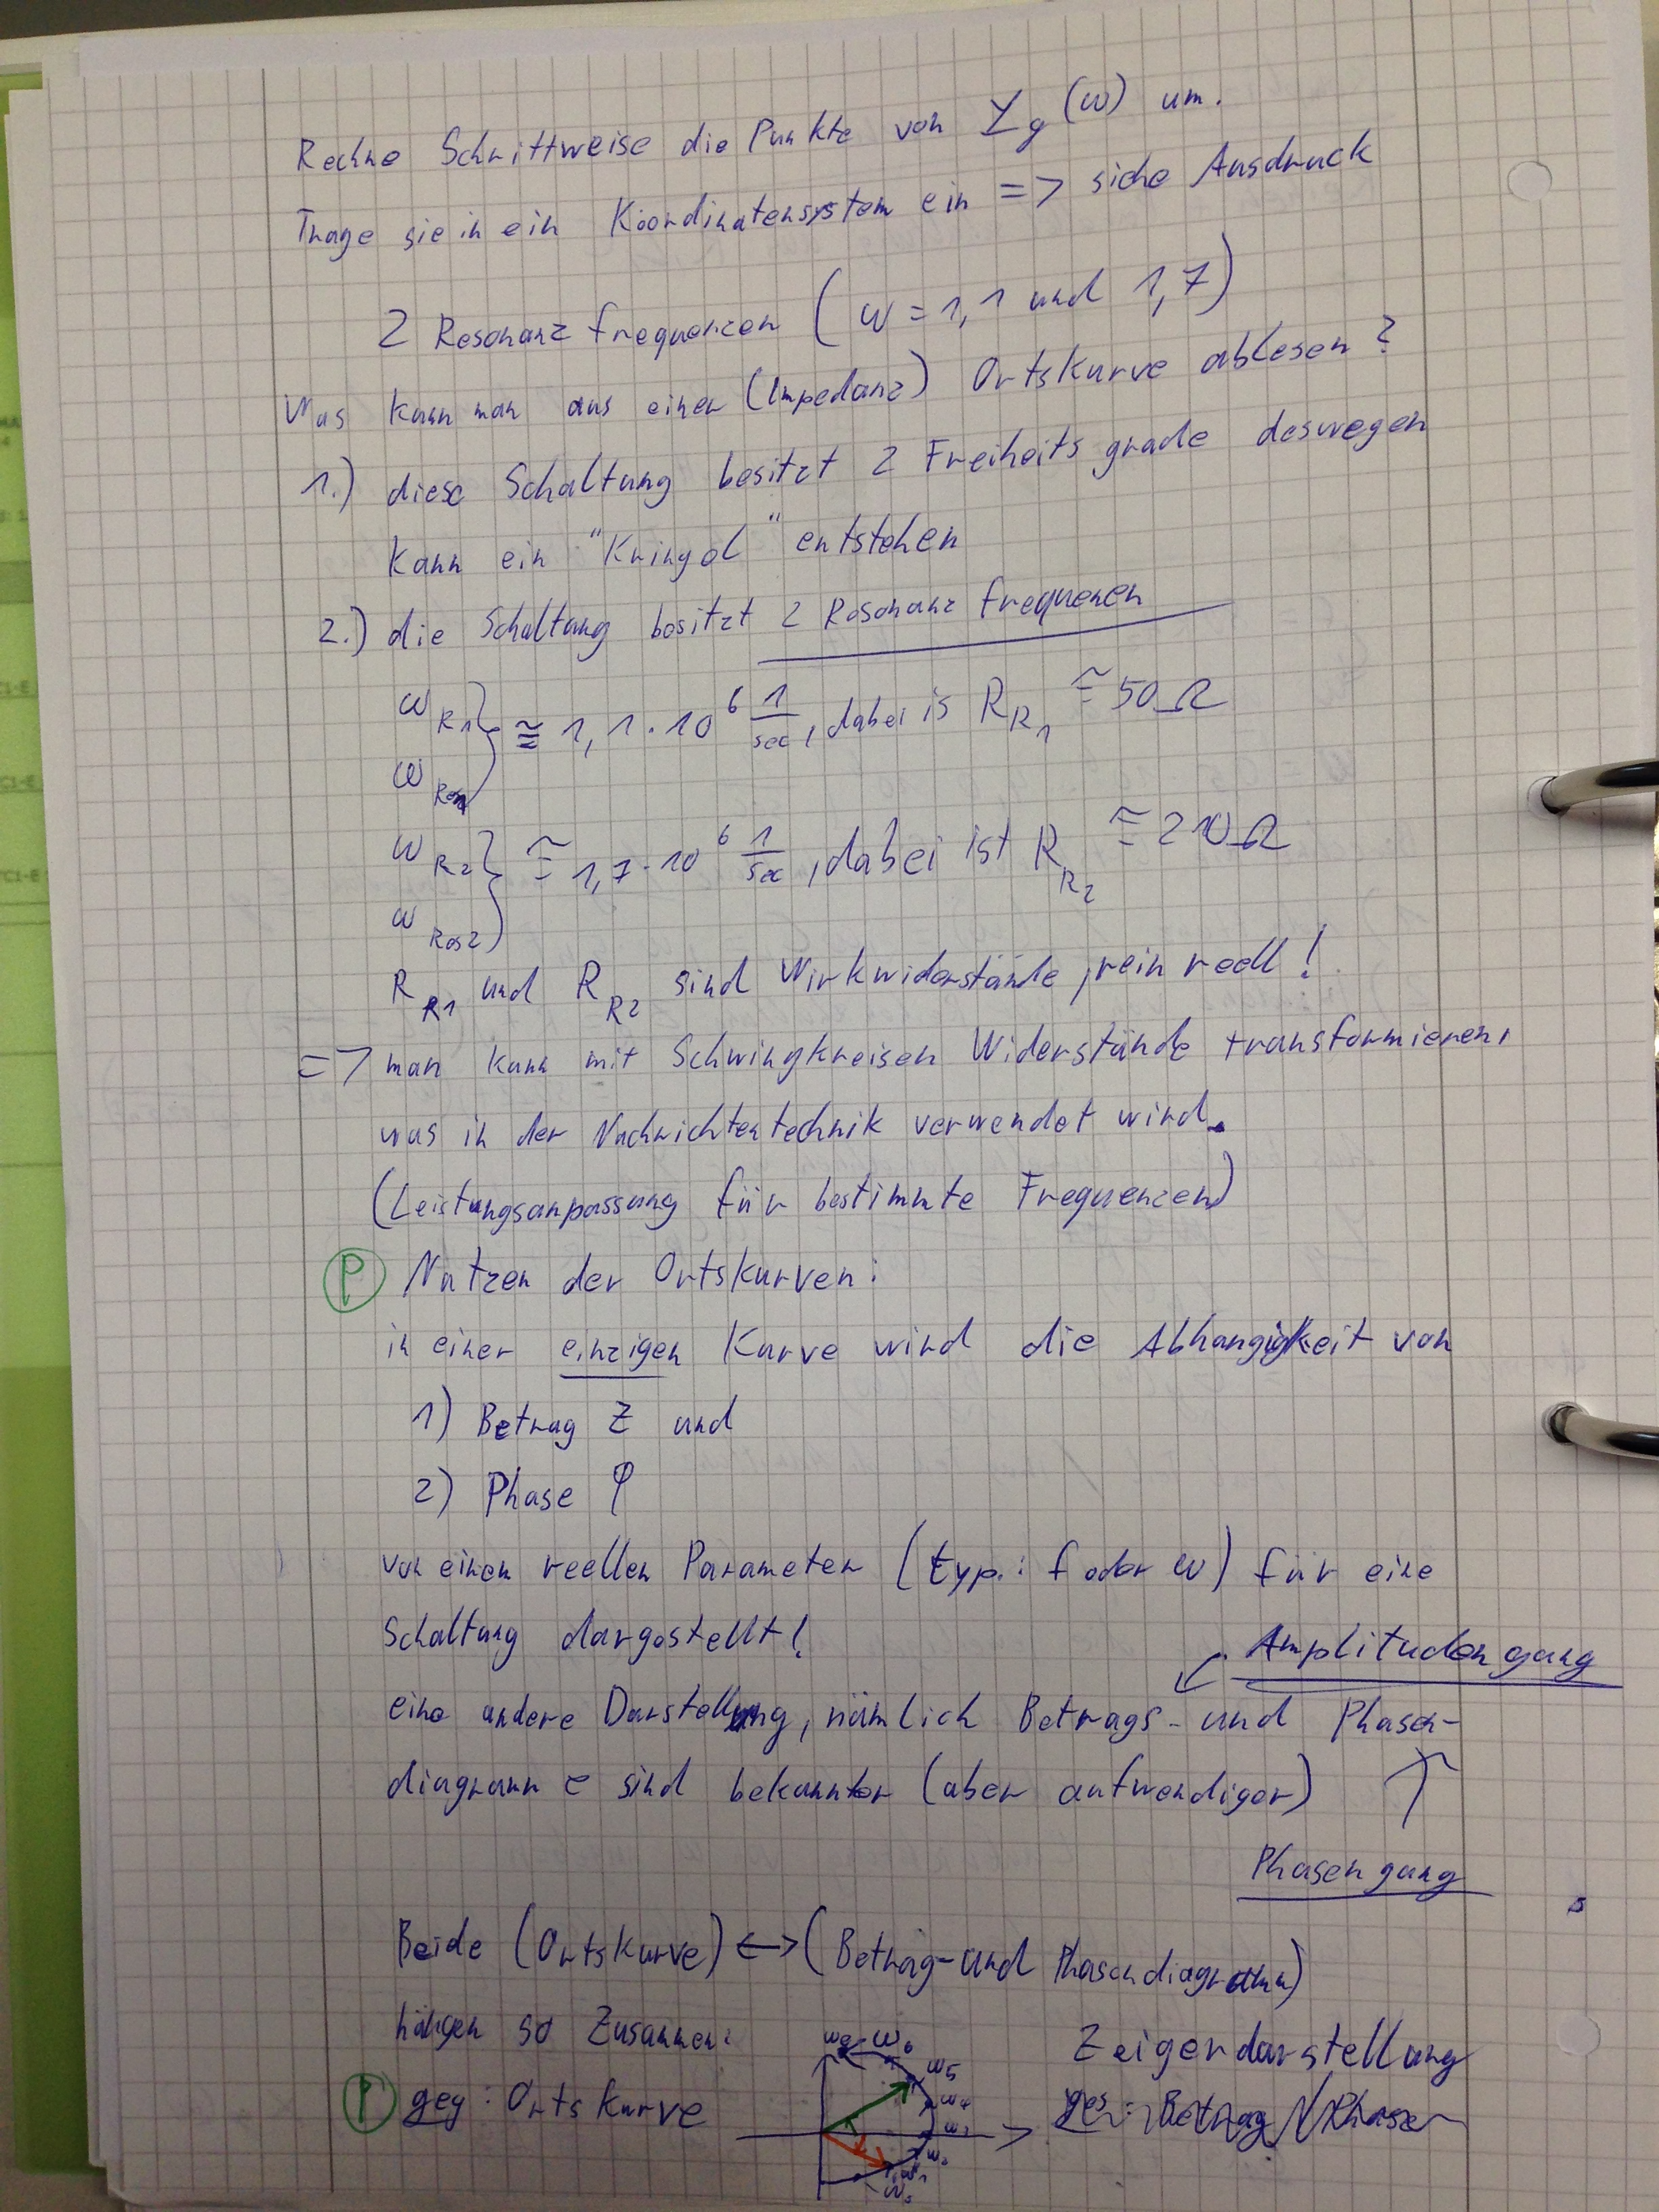 Rechne Schrittweise die Punkte von Y_g (ω) um.
Trage sie in ein Koordinatensystem ein => siehe Ausdruck
2 Resonanzfrequenzen (ω = 1,1 und 1,7)
Was kann man aus einer (Impedanz) Ortskurve ablesen?
1.) diese Schaltung besitzt 2 Freiheitsgrade deswegen
kann ein "Kringel" entstehen
2.) die Schaltung besitzt 2 Resonanzfrequenen
ω_R1 ω_Res1 } ≅ 1,1 · 10^6 1/sec, dabei is R_R1 ≅ 50 Ω
ω_R2 ω_Res2 } ≅ 1,7 · 10^6 1/sec, dabei ist R_R2 ≅ 210 Ω
R_R1 und R_R2 sind Wirkwiderstände, rein reell!
=> man kann mit Schwingkreisen Widerstände transformieren,
was in der Nachrichtentechnik verwendet wird.
(Leistungsanpassung für bestimmte Frequenzen)
P Nutzen der Ortskurven:
in einer einzigen Kurve wird die Abhängigkeit von
1) Betrag Z und
2) Phase φ
von einem reellen Parameter (typ.: f oder ω) für eine
Schaltung dargestellt!
Amplitudengang
eine andere Darstellung, nämlich Betrags- und Phasen-
diagramme sind bekannter (aber aufwendiger)
Phasengang
Beide (Ortskurve) <-> (Betrag- und Phasendiagramm)
hängen so Zusammen:
Zeigerdarstellung
P geg: Ortskurve
ges: Betrag / Phase
ω6
ω5
ω4
ω3
ω2
ω1